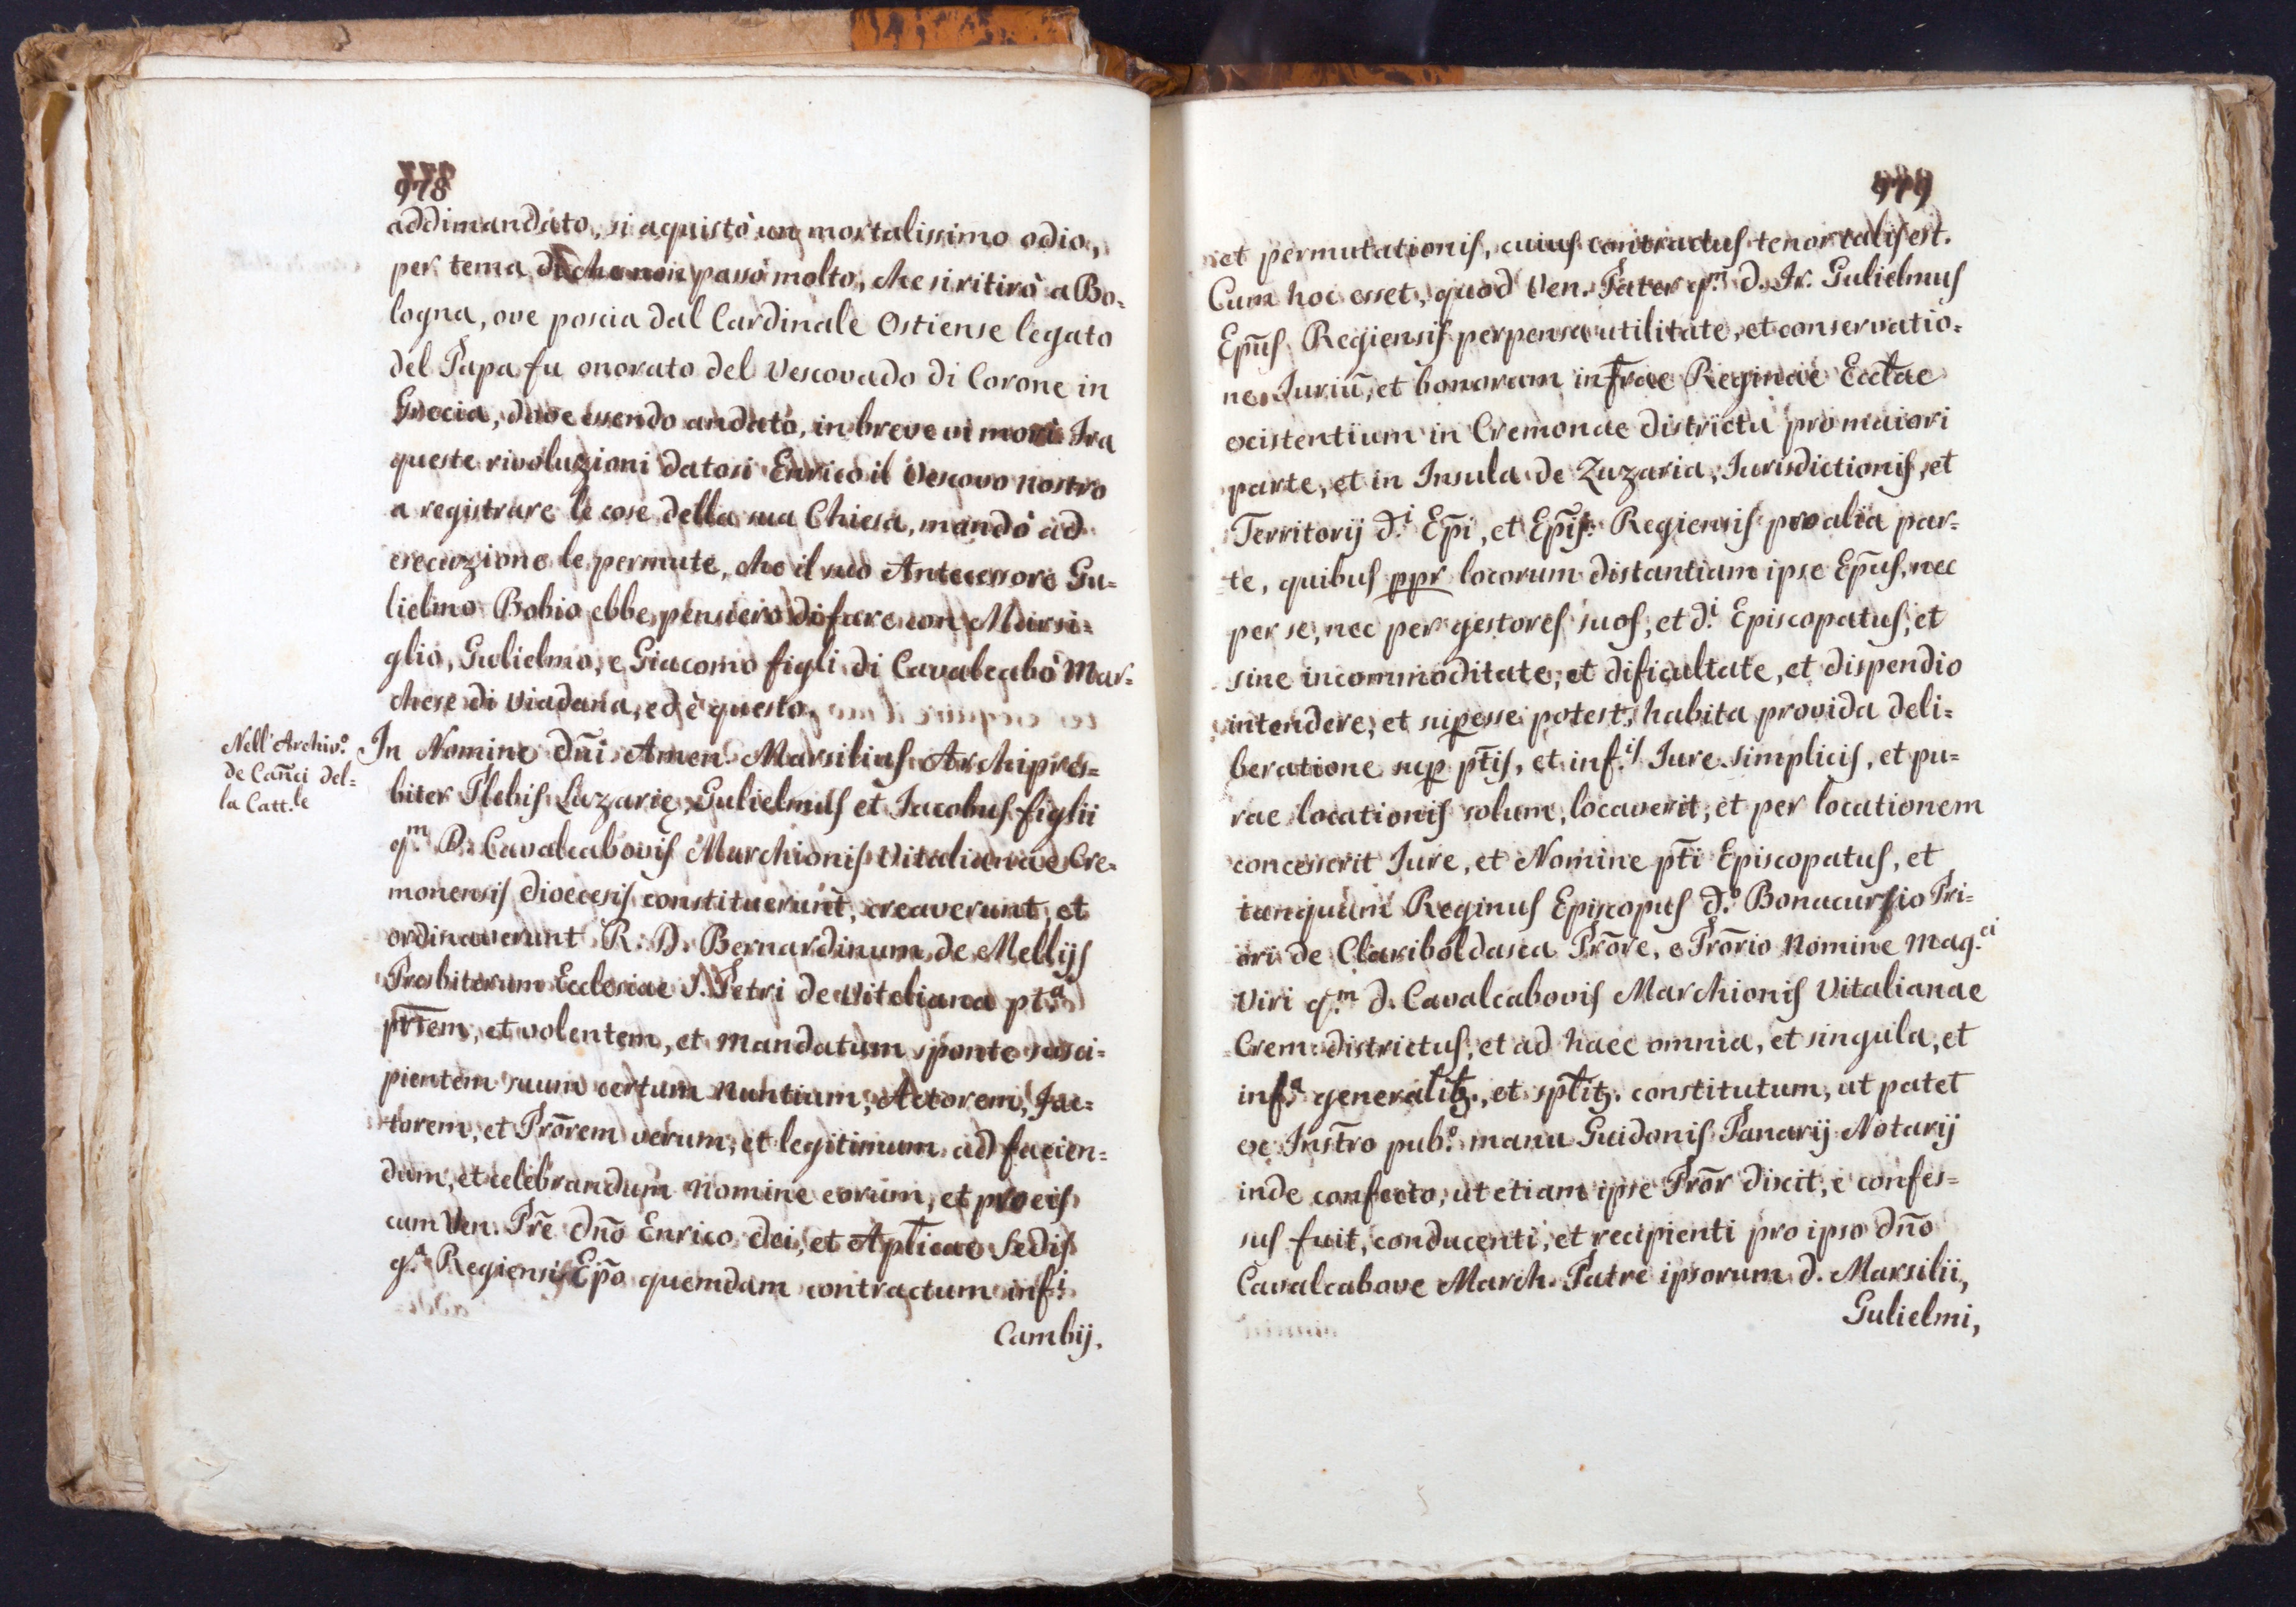 978
addimandato, si aquistò un mortalissimo odio,
per tema di che non passò molto, che si ritirò a Bo=
logna, ove poscia dal Cardinale Ostiense legato
del Papa fu onorato del Vescovado di Corone in
Grecia, dove essendo andato, in breve vi morì. Fra
queste rivoluzioni datosi Enrico il Vescovo nostro
a registrare le cose della sua Chiesa, mandò ad
esecuzione le permute, che il suo Antecessore Gu=
lielmo Bobio ebbe pensiero di fare con Marsi=
glio, Gulielmo, e Giacomo figli di Cavalcabò Mar=
chese di Viadana, ed è questo.
Nell'Archiv.o
de Can̄ci del=
la Catt.le
In Nomine dn̄i Amen. Marsilius Archipres=
biter Plebis Luzarię, Gulielmus et Jacobus figlii
q.m D. Cavalcabovis Marchionis Vitalianae Cre=
monensis dioecesis constituerunt, creaverunt, et
ordinaverunt R. D. Bernardinum de Mellijs
Presbiterum Ecclesiae S. Petri de Viteliana pt.a
pr̄tem, et volentem, et mandatum sponte susci=
pientem suum certum nuntium, Actorem, Fac=
torem, et Prōrem verum, et legitimum ad facien=
dum, et celebrandum nomine eorum, et pro eis
cum Ven. Pr̄e dn̄o Enrico dei, et Aplicae Sedis
g.a Regiensis Ep̄o quemdam contractum inf.i
Cambij.
979
et permutationis, cuius contractus tenor talis est.
Cum hoc esset, quod Ven. Pater q.m d. Fr. Gulielmus
Ep̄us Regiensis perpensa utilitate, et conservatio=
ne Juriū, et bonorum infrae Reginae Ecctae
existentium in Cremonae districtu pro maiori
parte, et in Insula de Zuzaria, Jurisdictionis, et
Territorij d.i Ep̄i, et Ep̄is. Regiensis pro alia par=
te, quibus ppr locorum distantiam ipse Ep̄us, nec
per se, nec per gestores suos, et d.i Episcopatus, et
sine incommoditate, et dificultate, et dispendio
intendere, et supesse potest, habita provida deli=
beratione sup pt̄is, et inf.is Jure simplicis, et pu=
rae locationis solum, locaverit, et per locationem
concesserit Jure, et Nomine pt̄i Episcopatus, et
tanquam Reginus Episcopus d.o Bonacursio Pri=
ori de Clariboldasca Prōre, e Prōrio nomine Mag.ci
Viri q.m d. Cavalcabovis Marchionis Vitalianae
Crem. districtus, et ad haec omnia, et singula, et
inf.a generalitz., et splitz. constitutum, ut patet
ex Instr̄o pub.o manu Guidonis Panarij Notarij
inde confecto, ut etiam ipse Prōr dixit, e confes=
sus fuit, conducenti, et recipienti pro ipso dn̄o
Cavalcabove March. Patre ipsorum d. Marsilii,
Gulielmi,